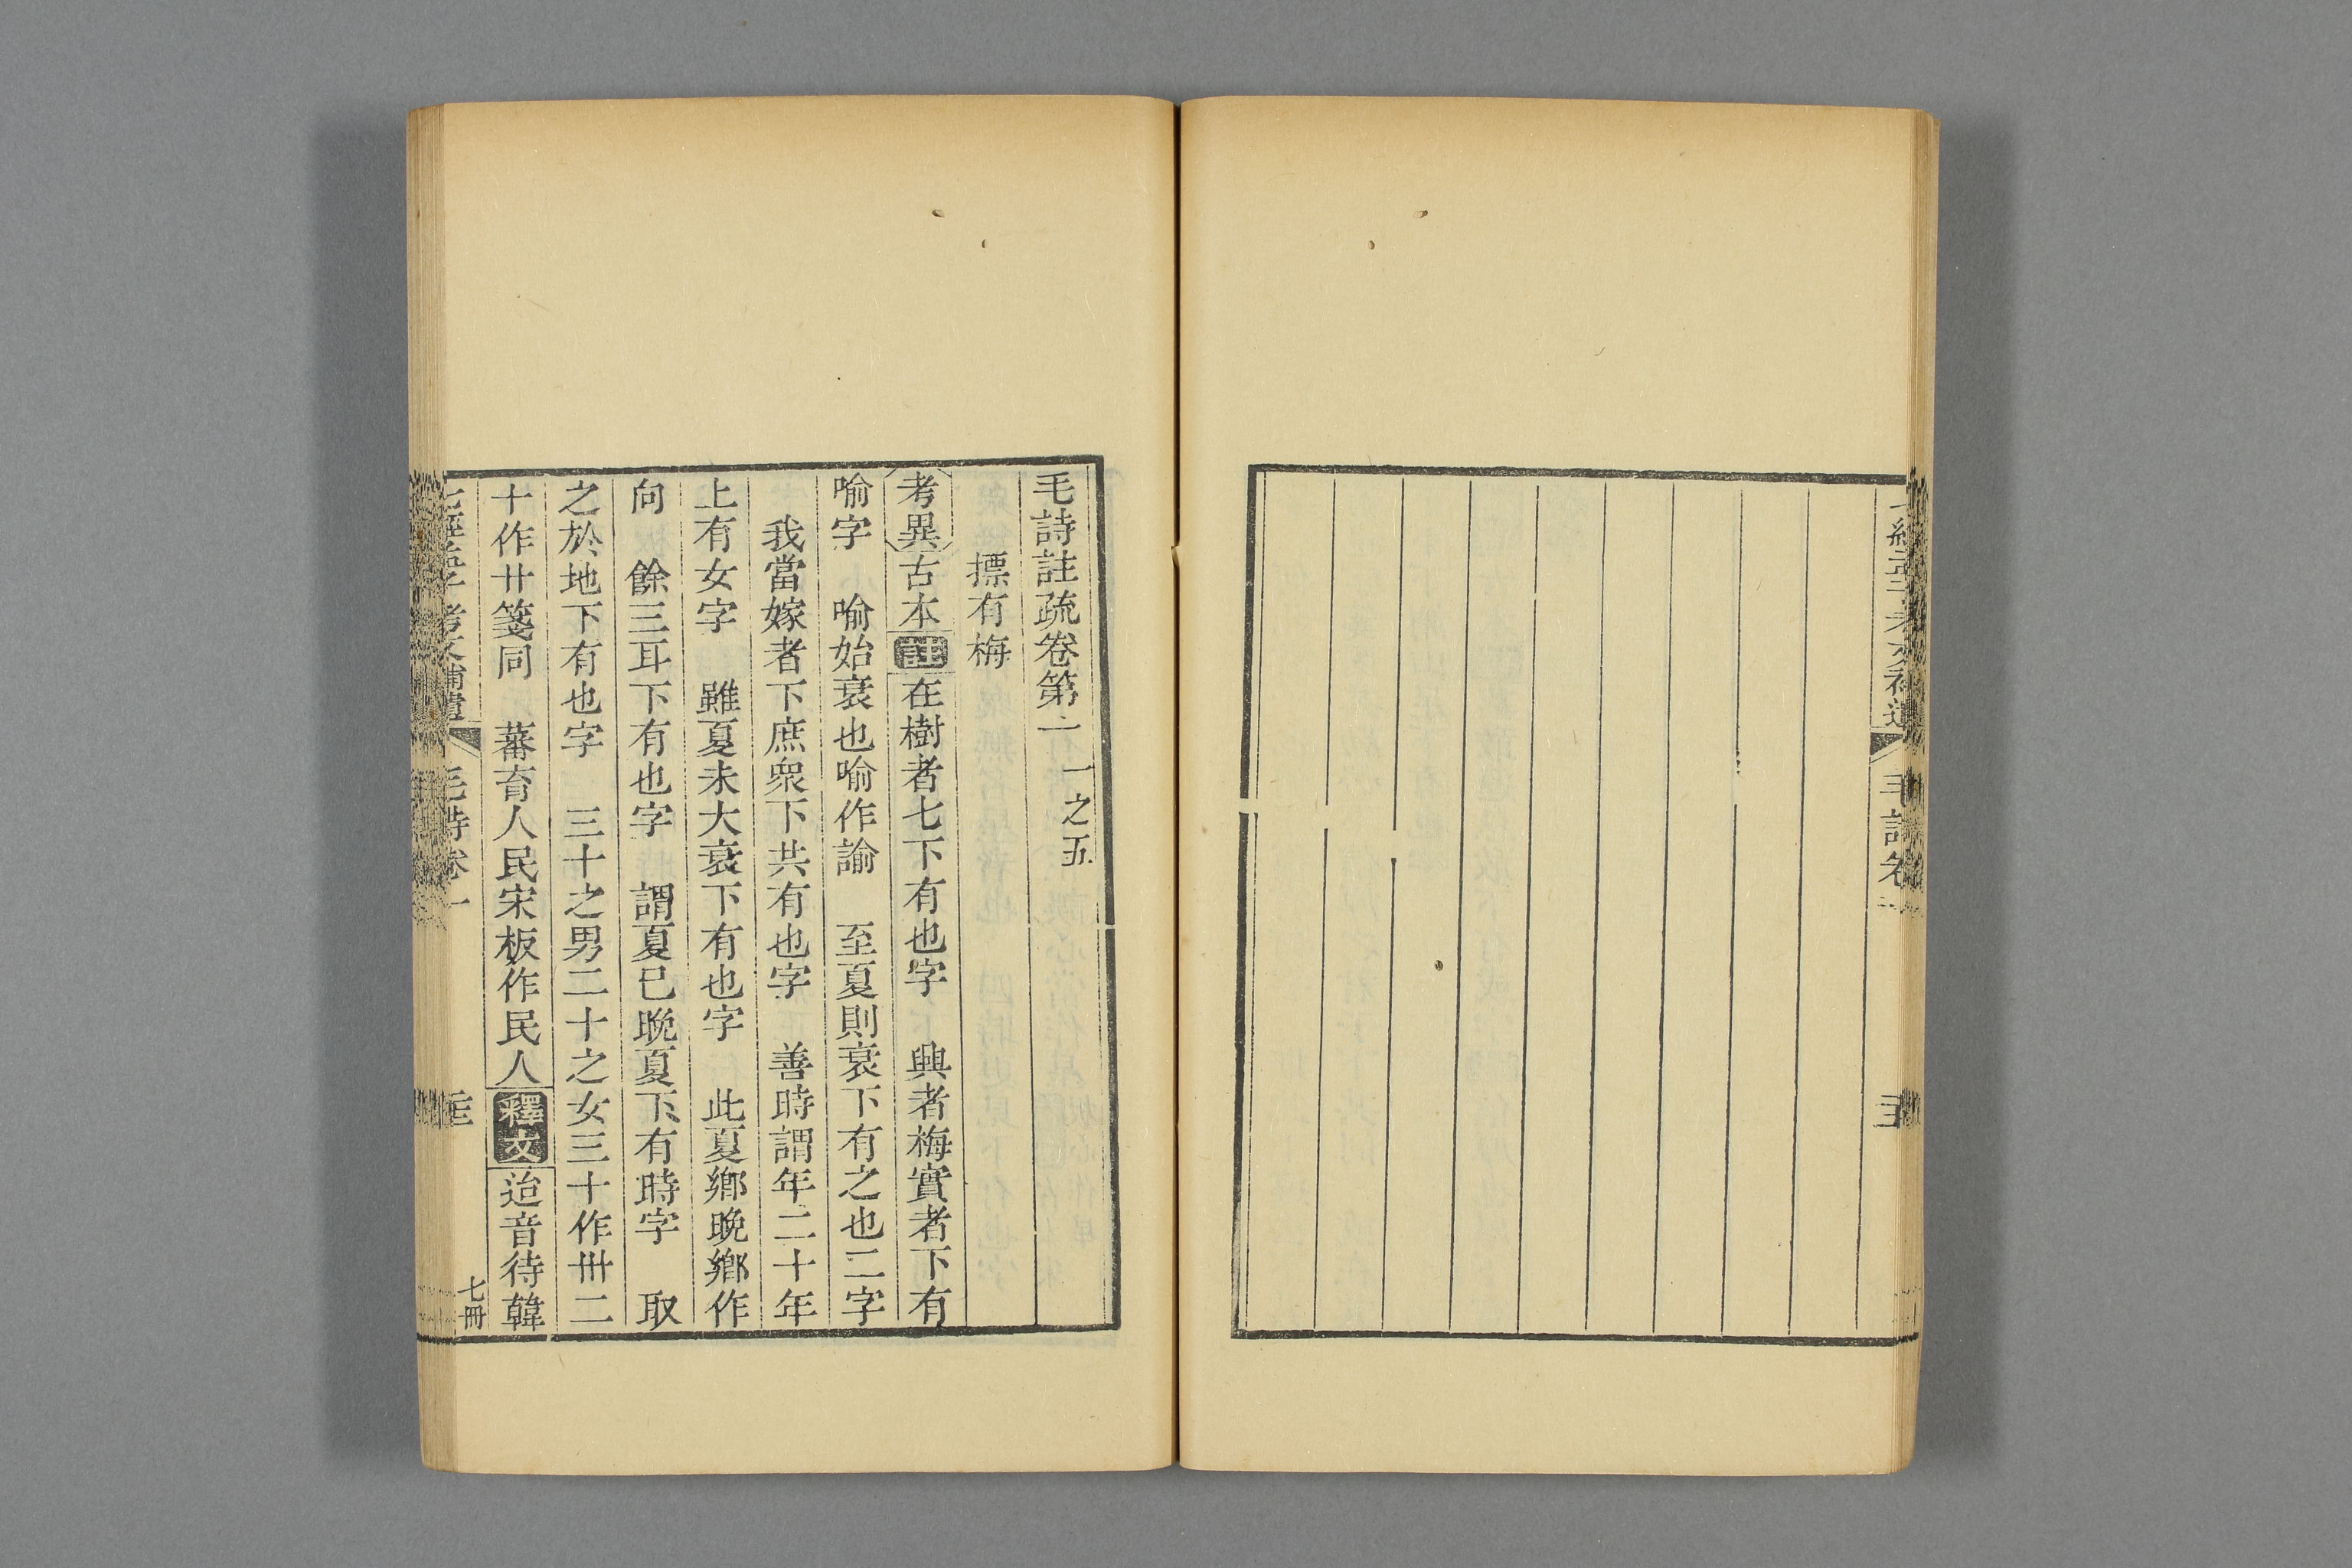 毛詩卷一
毛詩註疏卷第一 一之五
摽有梅
考異古本註在樹者七下有也字 興者梅實者下有
喻字 喻始衰也喻作諭 至夏則衰下有之也二字
我當嫁者下庶衆下共有也字 善時謂年二十年
上有女字 雖夏未大衰下有也字 此夏鄉晚鄉作
向 餘三耳下有也字 謂夏巳晚夏下有時字 取
之於地下有也字 三十之男二十之女三十作卅二
十作廿箋同 蕃育人民宋板作民人釋文迨音待韓
考文補遺 毛詩卷一 七冊